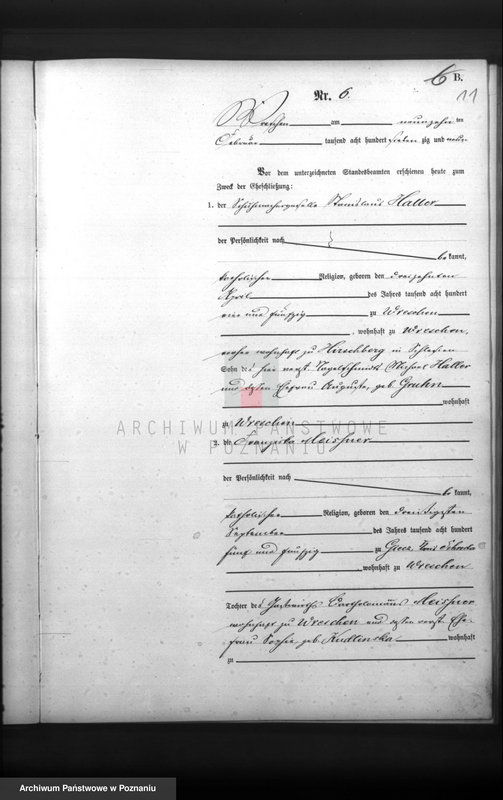 6 B.
11
Nr. 6.
Wreschen am neunzehn ten
Februar tausend acht hundert sieben zig und neun
Vor dem unterzeichneten Standesbeamten erschienen heute zum
Zweck der Eheschließung:
1. der Schuhmachergeselle Stanislaus Haller
der Persönlichkeit nach
be kannt,
katholischer Religion, geboren den dreizehnten
April des Jahres tausend acht hundert
vier und fünfzig zu Wreschen
, wohnhaft zu Wreschen,
vorher wohnhaft zu Hirschberg in Schlesien
Sohn des hier verst. Nagelschmidts Michael Haller
und dessen Ehefrau Auguste, geb Gruhn
wohnhaft
zu Wreschen
2. die Franziska Meissner
der Persönlichkeit nach
be kannt,
katholischer Religion, geboren den dreißigsten
September des Jahres tausend acht hundert
fünf und fünfzig zu Giecz, Kreis Schroda
, wohnhaft zu Wreschen
Tochter des Gastwirths Bartholomäus Meissner
wohnhaft zu Wreschen und dessen verst. Ehe-
frau Sophie geb Kudlinska wohnhaft
zu
ARCHIWUM PAŃSTWOWE
W POZNANIU
Archiwum Państwowe w Poznaniu